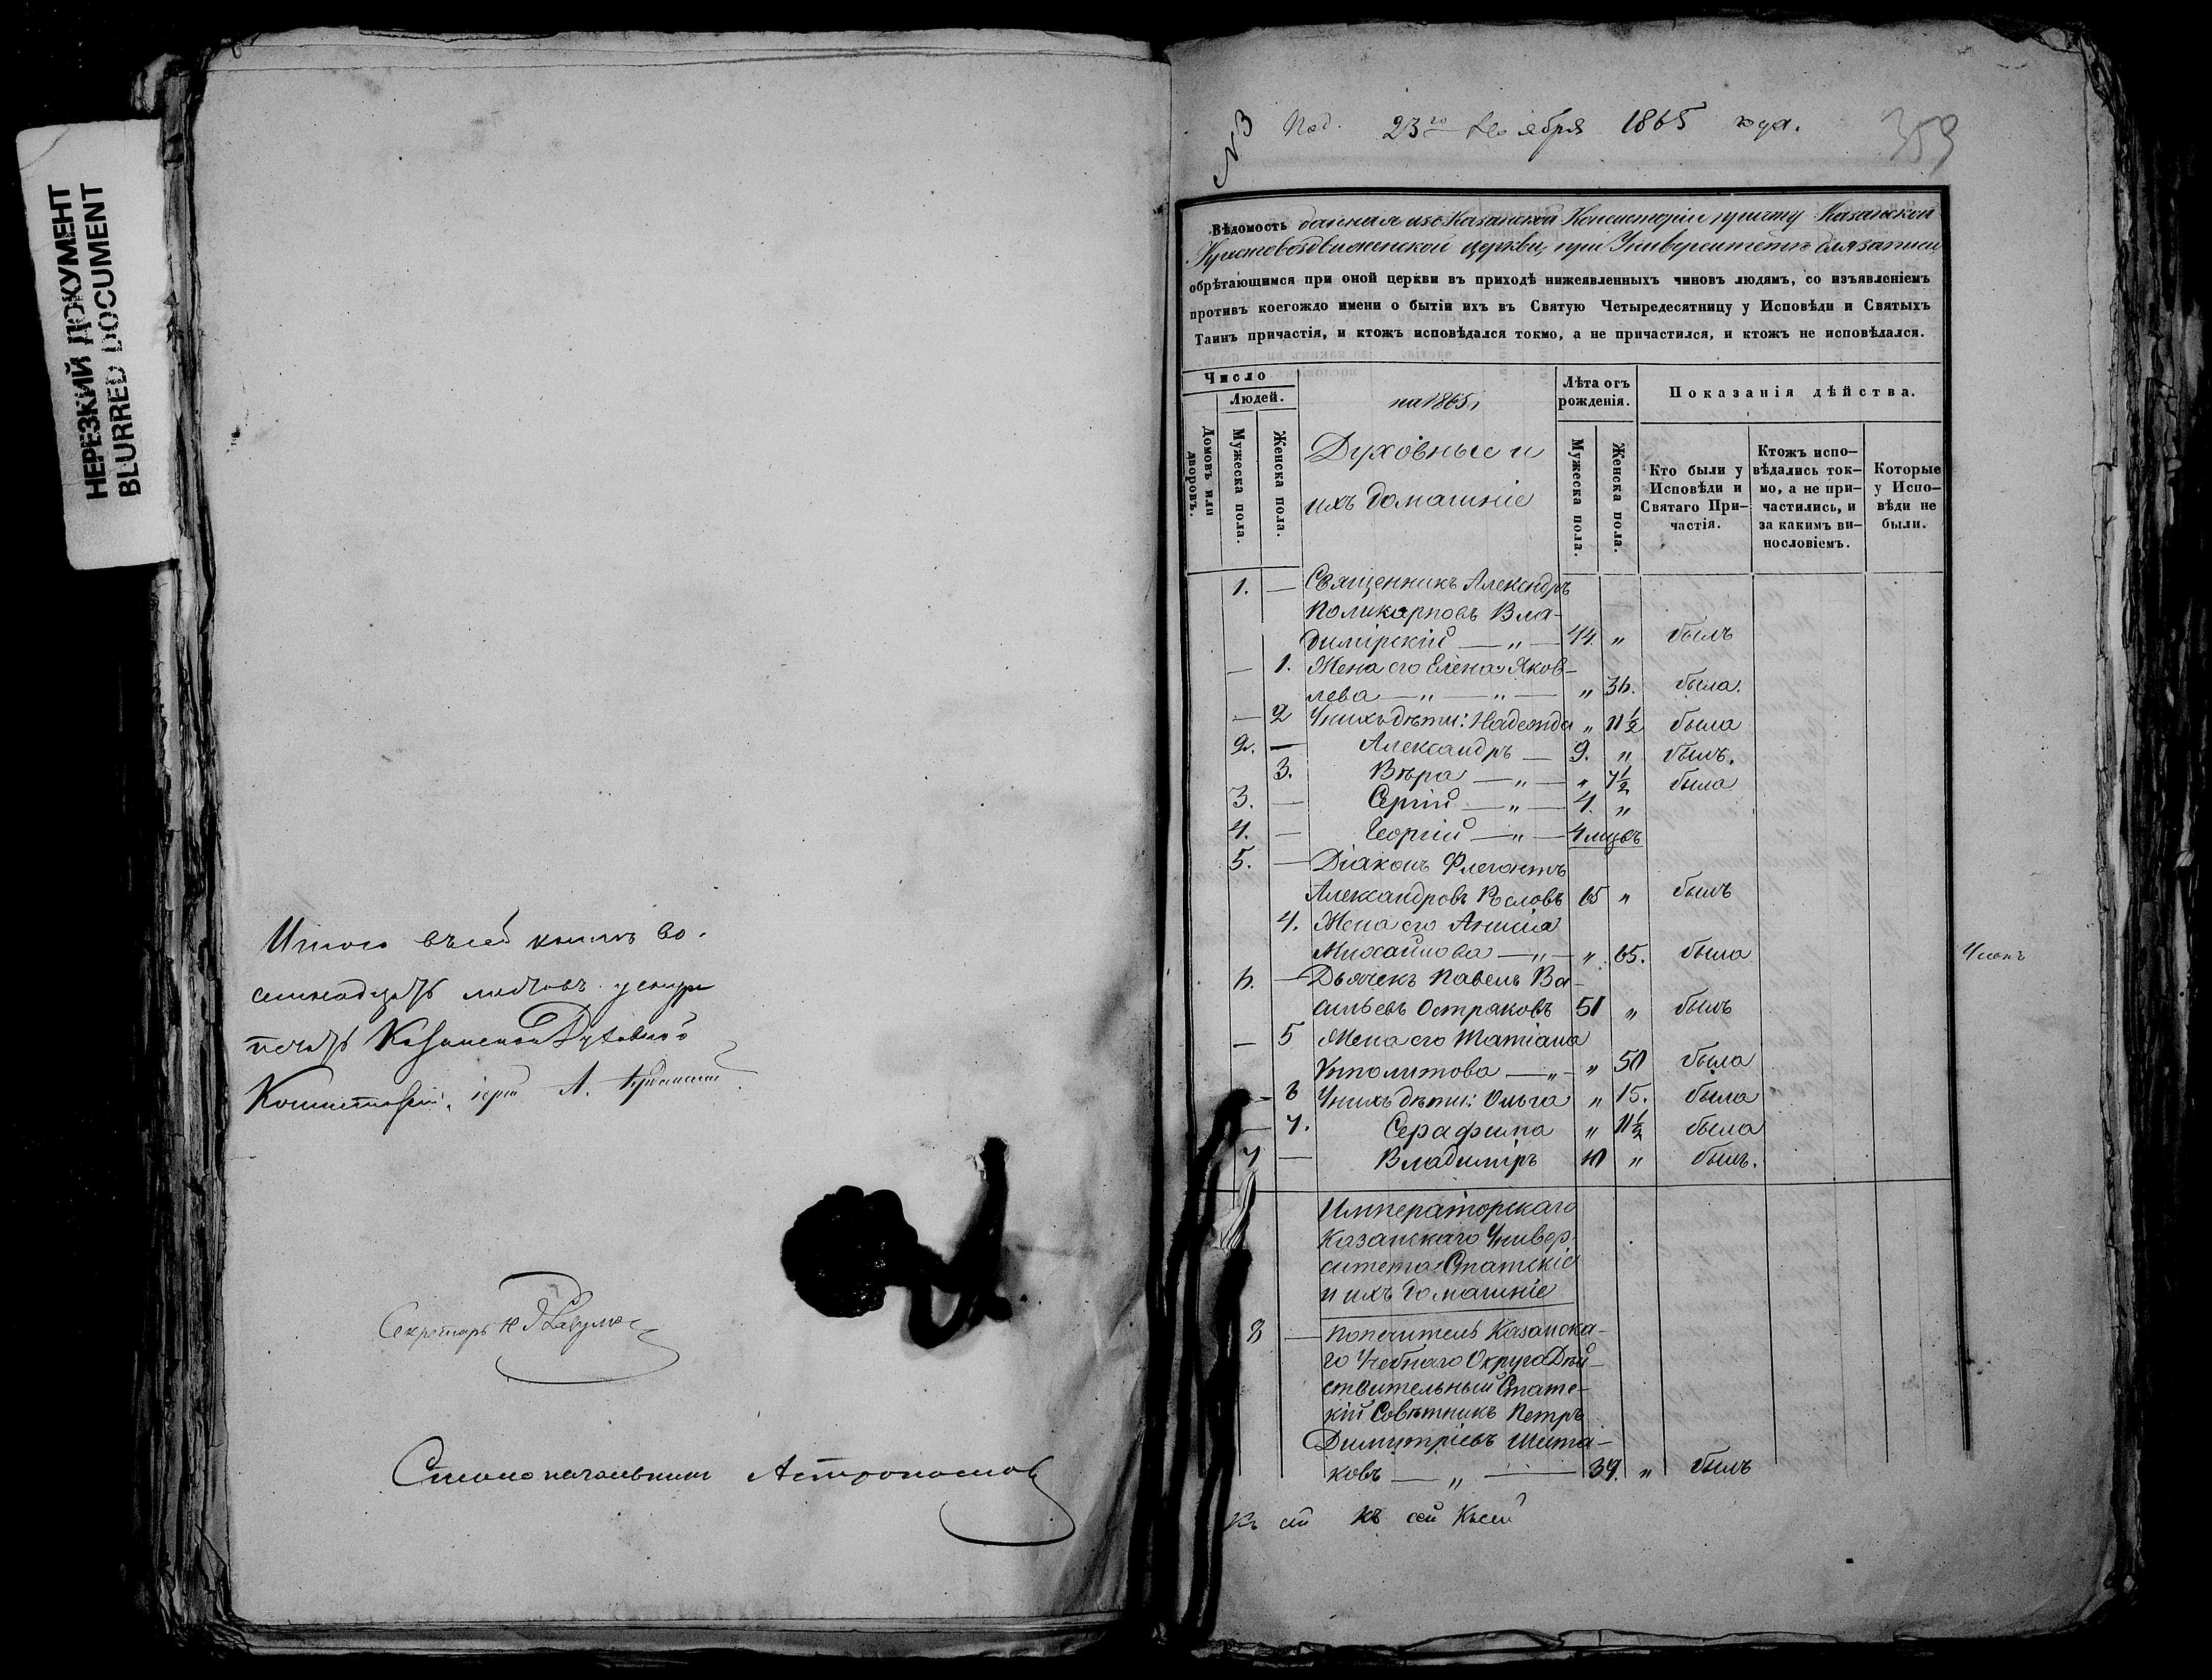 НЕРЕЗКИЙ ДОКУМЕНТ
BLURRED DOCUMENT
Итого въ сей книгѣ во-
семнадцать листовъ у сего
печать Казанской Духовной
Консисторіи.
Секретарь
Столоначальникъ
№3 Под. 23го Ноября 1865 года.
359
Вѣдомость данная изъ Казанской Консисторіи причту Казанской
Крестовоздвиженской церкви, при Университетѣ для записи
обрѣтающимся при оной церкви въ приходѣ нижеявленныхъ чиновъ людямъ, со изъявленіемъ
противъ коегождо имени о бытіи ихъ въ Святую Четыредесятницу у Исповѣди и Святыхъ
Таинъ причастія, и ктожъ исповѣдался токмо, а не причастился, и ктожъ не исповѣдался.
Число
Людей.
Домовъ или дворовъ.
Мужеска пола.
Женска пола.
на 1865г
Духовные и
ихъ домашніе
Лѣта отъ
рожденія.
Мужеска пола.
Женска пола.
Показанія дѣйства.
Кто были у
Исповѣди и
Святаго При-
частія.
Ктожъ испо-
вѣдались ток-
мо, а не при-
частились, и
за какимъ ви-
нословіемъ.
Которые
у Испо-
вѣди не
были.
1. — Священникъ Александръ
Поликарповъ Вла-
димірскій — „ — 44. „ былъ
— 1. Жена его Елена Яков-
лева — „ — „ — „ 36. была.
— 2 У нихъ дѣти: Надежда „ 11½ была
2. — Александръ — 9. „ былъ.
3. Вѣра — „ — „ 7½ была
3. — Сергій — „ — 4. „
4. — Георгій — „ — 4 мцовъ
5. — Діаконъ Флегонтъ
Александровъ 65 „ былъ
4. Жена его Анисіа
Михайлова — „ — „ 65. была
6. — Дьячекъ Павелъ Ва-
сильевъ Остраковъ 51 „ былъ
— 5 Жена его Татіана
Ипполитова — „ — „ 50 была
— 6 У нихъ дѣти: Ольга „ 15. была
— 7. Серафима „ 11½ была
7 — Владиміръ 10 „ былъ.
Императорскаго
Казанскаго Универ-
ситета Статскіе
и ихъ домашніе
8 — Попечитель Казанска-
го Учебнаго Округа Дѣй-
ствительный Статс-
кій Совѣтникъ Петръ
Димитріевъ Шеста-
ковъ — „ — 39. „ былъ
Къ сей къ сей